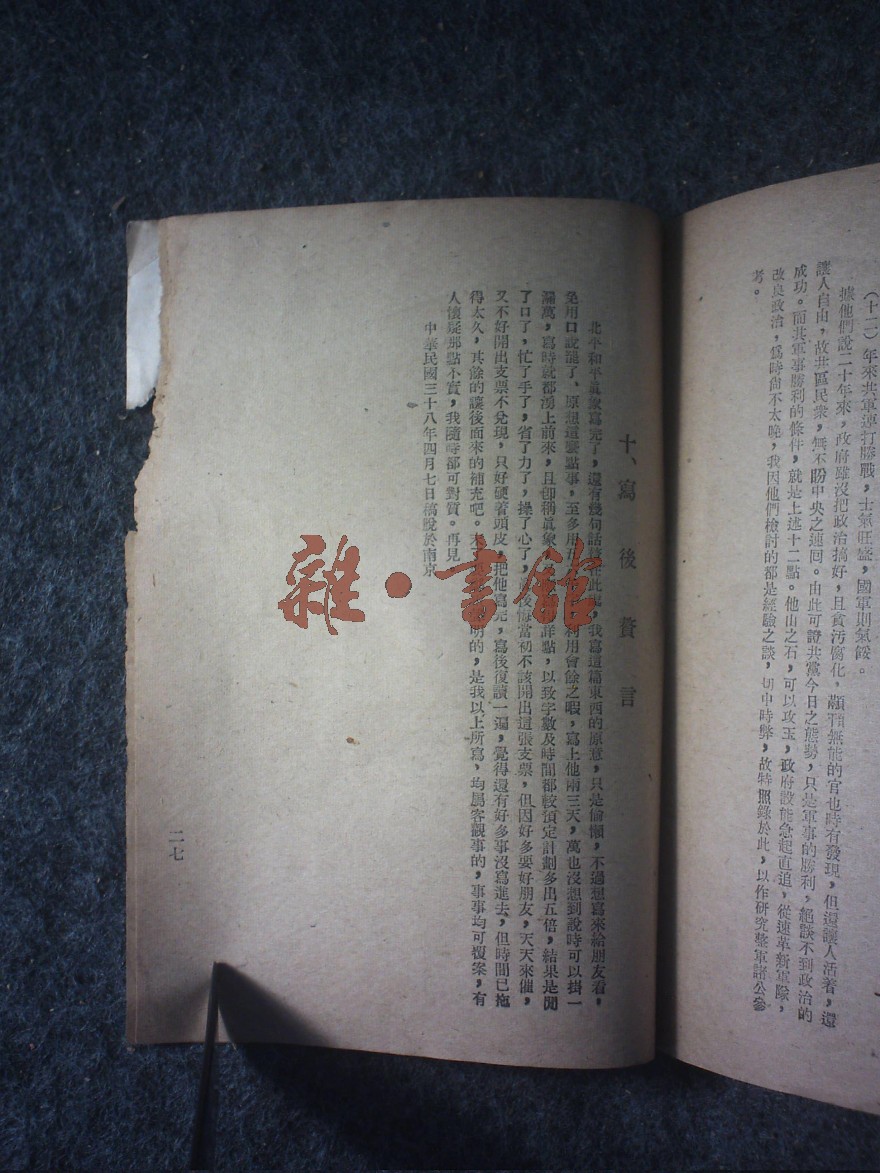 (十二)年來共軍連打勝戰,士氣旺盛,國軍則氣餒。
據他們說二十年來,政府雖沒把政治搞好,且貪汚腐化,顢頇無能的官也時有發現,但還讓人活着,還
讓人自由,故共區民衆,無不盼中央之速回。由此可證共黨今日之態勢,只是軍事的勝利,絕談不到政治的
成功。而共軍事勝利的條件,就是上述十二點。他山之石,可以攻玉,政府設能急起直追,從速革新軍隊,
改良政治,爲時尚不太晚,我因他們檢討的都是經驗之談,切中時弊,故特照錄於此,以作研究整軍諸公參
考。
十、寫後贅言
北平和平眞象寫完了,還有幾句話 此 我寫這篇東西的原意,只是偷懶,不過想寫來給朋友看,
免用口說罷了、原想這麽點事,至多用 利用會餘之暇,寫上他兩三天,萬也沒想到說時可以掛一
漏萬,寫時就都湧上前來,且卽稱眞象 詳點,以致字數及時間都較預定計劃多出五倍,結果是閒
了口了,忙了手了,省了力了,操了心了, 後悔當初不該開出這張支票,但因好多要好朋友,天天來催,
又不好開出支票不兌現,只好硬着頭皮,把他寫完,寫後復讀一遍,覺得還有好多事沒寫進去,但時間已拖
得太久,其餘的讓後面來的補充吧。末 明的,是我以上所寫,均屬客觀事的,事事均可覆案,有
人懷疑那點不實,我隨時都可對質。再見。
中華民國三十八年四月七日稿脫於南京
二七
雜·書館